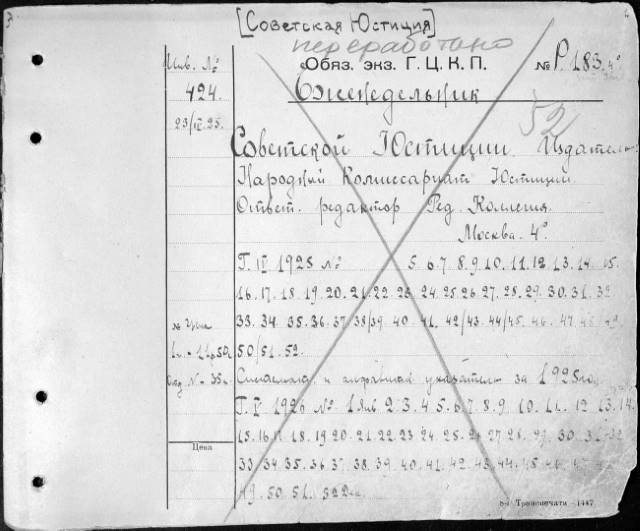 [Советская Юстиция]
переработано
Обяз. экз. Г. Ц. К. П. № Р. 183. 4°
Инв. №
424.
23/IV 25.
Еженедельник
52
Советской Юстиции. Издатель:
Народный Комиссариат Юстиции.
Ответ. редактор Ред. Коллегия.
Москва. 4°.
Г. IV 1925 № 5. 6. 7. 8. 9. 10. 11. 12. 13. 14. 15.
16. 17. 18. 19. 20. 21. 22. 23. 24. 25. 26. 27. 28. 29. 30. 31. 32
33. 34. 35. 36. 37. 38/39. 40. 41. 42/43. 44/45. 46. 47. 48/49
50/51. 52.
и алфавитный указатель за 1925 год
Г. V 1926 № 1 Янв 2. 3. 4. 5. 6. 7. 8. 9. 10. 11. 12. 13. 14.
15. 16. 17. 18. 19. 20. 21. 22. 23. 24. 25. 26. 27. 28. 29. 30. 31. 32
33. 34. 35. 36. 37. 38. 39. 40. 41. 42. 43. 44. 45. 46.
49. 50. 51. 52
Цена
1447